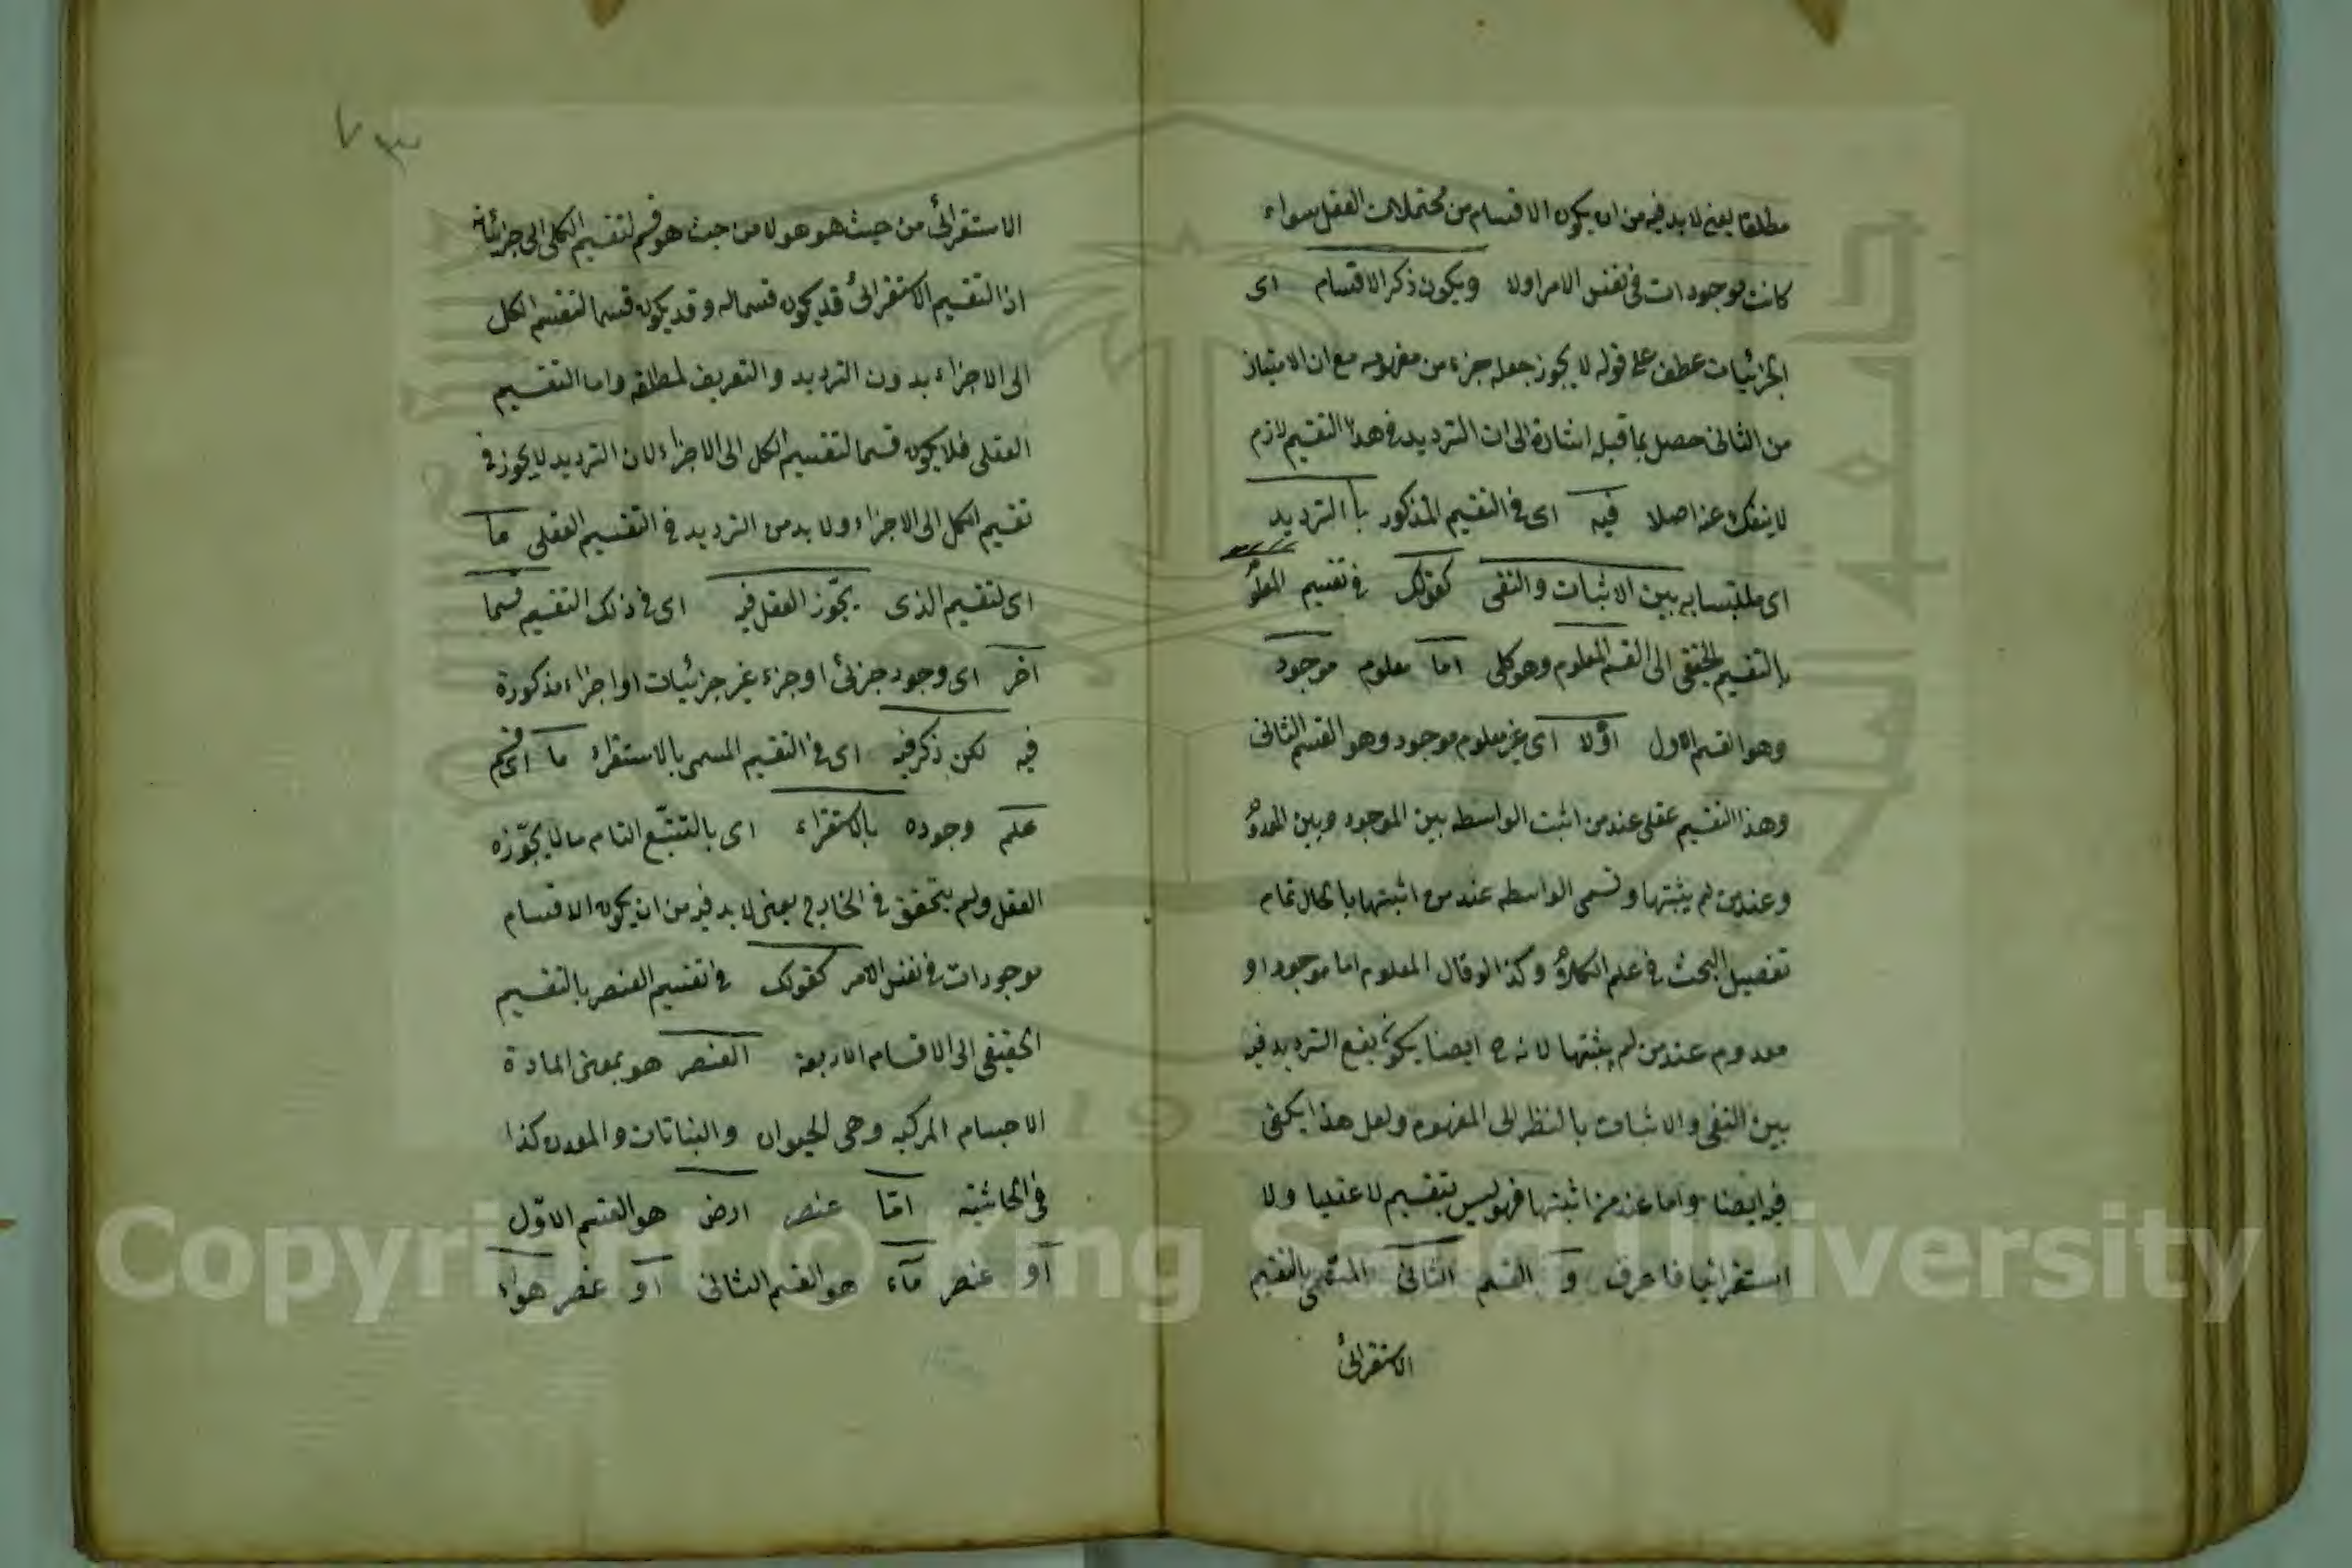 مطلقا يعنى لا بد فيه من ان يكون الاقسام من محتملات العقل سواء
كانت موجودات فى نفس الامر اولا ويكون ذكر الاقسام اى
الجزئيات عطف على قوله لا يجوز جعله جزء من مفهومه مع ان الامتياز
من الثانى حصل بما قبله اشارة الى ان الترديد فى هذا التقسيم لازم
لا ينفك عنه اصلا فيه اى فى التقسيم المذكور بالترديد
اى ملتبسا به بين الاثبات والنفى كقولك فى تقسيم المعلوم
بالتقسيم الحقيقى الى القسم المعلوم وهو كلى اما معلوم موجود
وهو القسم الاول اولا اى غير معلوم موجود وهو القسم الثانى
وهذا التقسيم عقلى عند من اثبت الواسطه بين الموجود وبين المعدوم
وعند من لم يثبتها وتسمى الواسطه عند من اثبتها بالحال تمام
تفصيل البحث فى علم الكلام وكذا لو قال المعلوم اما موجود او
معدوم عند من لم يثبتها لانه ح ايضا يكون يقع الترديد فيه
بين النفى والاثبات بالنظر الى المفهوم ولعل هذا يكفى
فيه ايضا واما عند من اثبتها فهو ليس بتقسيم لا عقليا ولا
استقرائيا فاعرف و القسم الثانى المسمى بالتقسيم
الاستقرائى
٧٣
الاستقرائى من حيث هو هو لا من حيث هو قسم لتقسيم الكلى الى جزئياته
اذ التقسيم الاستقرائى قد يكون قسما له وقد يكون قسما لتقسيم الكل
الى الاجزاء بدون الترديد والتعريف لمطلقه واما التقسيم
العقلى فلا يكون قسما لتقسيم الكل الى الاجزاء لان الترديد لا يجوز فى
تقسيم الكل الى الاجزاء ولا بد من الترديد فى التقسيم العقلى ما
اى لتقسيم الذى يجوّز العقل فيه اى فى ذلك التقسيم قسما
آخر اى وجود جزئى او جزء غير جزئيات او اجزاء مذكورة
فيه لكن ذكر فيه اى فى التقسيم المسمى بالاستقراء ما اى قسم
علم وجوده بالاستقراء اى بالتتبّع التام ما لا يجوّزه
العقل ولم يتحقق فى الخارج يعنى لا بد فيه من ان يكون الاقسام
موجودات فى نفس الامر كقولك فى تقسيم العنصر بالتقسيم
الحقيقى الى الاقسام الاربعة العنصر هو بمعنى المادة
الاجسام المركبه وهى الحيوان والنباتات والمعدن كذا
فى الحاشيته امّا عنصر ارض هو القسم الاوّل
او عنصر مآء هو القسم الثانى او عنصر هواء
Copyright © King Saud University